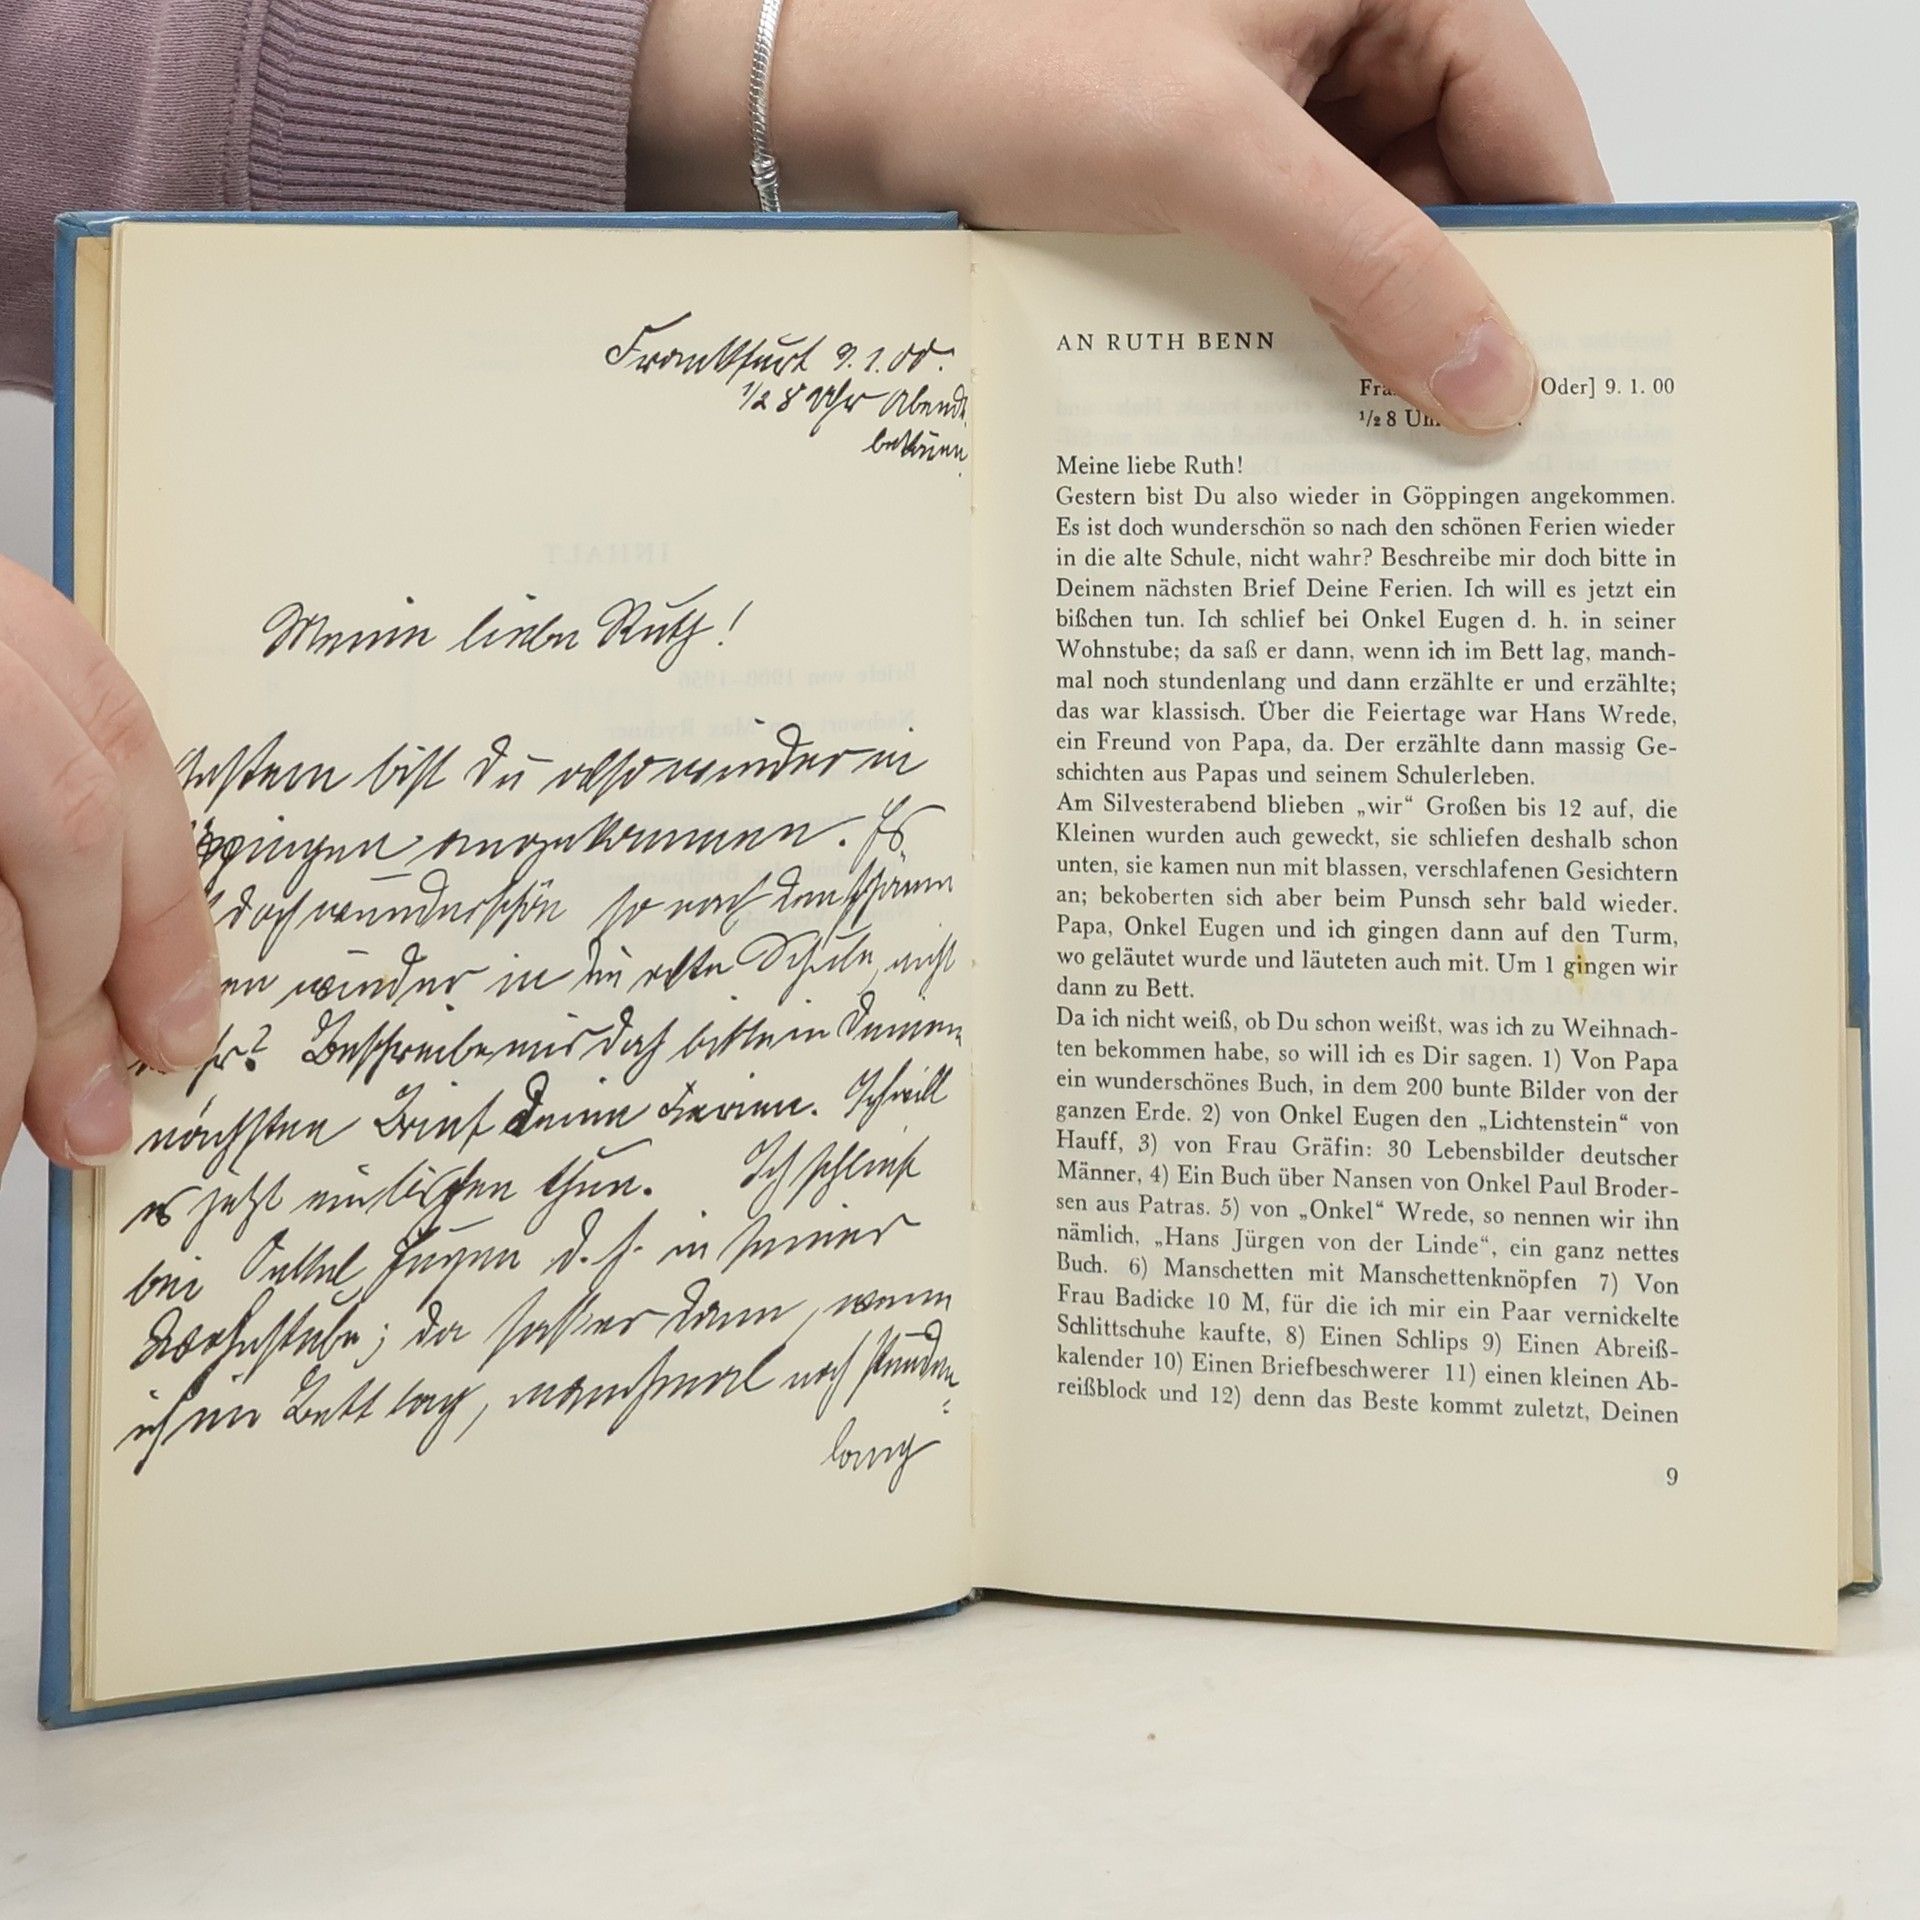 Frankfurt 9.1.00.
1/2 8 Uhr Abend.
Meine liebe Ruth!
Gestern bist Du also wieder in
ppingen angekommen. Es
doch wunderschön so nach den schönen
en wieder in die alte Schule, nicht
hr? Beschreibe mir doch bitte in Deinem
nächsten Brief Deine Ferien. Ich will
es jetzt ein bißchen thun. Ich schlief
bei Onkel Eugen d. h. in seiner
Wohnstube; da saß er dann, wenn
ich im Bett lag, manchmal noch stunden-
lang
AN RUTH BENN
Fra Oder] 9. 1. 00
1/2 8 Uh
Meine liebe Ruth!
Gestern bist Du also wieder in Göppingen angekommen.
Es ist doch wunderschön so nach den schönen Ferien wieder
in die alte Schule, nicht wahr? Beschreibe mir doch bitte in
Deinem nächsten Brief Deine Ferien. Ich will es jetzt ein
bißchen tun. Ich schlief bei Onkel Eugen d. h. in seiner
Wohnstube; da saß er dann, wenn ich im Bett lag, manch-
mal noch stundenlang und dann erzählte er und erzählte;
das war klassisch. Über die Feiertage war Hans Wrede,
ein Freund von Papa, da. Der erzählte dann massig Ge-
schichten aus Papas und seinem Schulerleben.
Am Silvesterabend blieben „wir“ Großen bis 12 auf, die
Kleinen wurden auch geweckt, sie schliefen deshalb schon
unten, sie kamen nun mit blassen, verschlafenen Gesichtern
an; bekoberten sich aber beim Punsch sehr bald wieder.
Papa, Onkel Eugen und ich gingen dann auf den Turm,
wo geläutet wurde und läuteten auch mit. Um 1 gingen wir
dann zu Bett.
Da ich nicht weiß, ob Du schon weißt, was ich zu Weihnach-
ten bekommen habe, so will ich es Dir sagen. 1) Von Papa
ein wunderschönes Buch, in dem 200 bunte Bilder von der
ganzen Erde. 2) von Onkel Eugen den „Lichtenstein“ von
Hauff, 3) von Frau Gräfin: 30 Lebensbilder deutscher
Männer, 4) Ein Buch über Nansen von Onkel Paul Broder-
sen aus Patras. 5) von „Onkel“ Wrede, so nennen wir ihn
nämlich, „Hans Jürgen von der Linde“, ein ganz nettes
Buch. 6) Manschetten mit Manschettenknöpfen 7) Von
Frau Badicke 10 M, für die ich mir ein Paar vernickelte
Schlittschuhe kaufte, 8) Einen Schlips 9) Einen Abreiß-
kalender 10) Einen Briefbeschwerer 11) einen kleinen Ab-
reißblock und 12) denn das Beste kommt zuletzt, Deinen
9